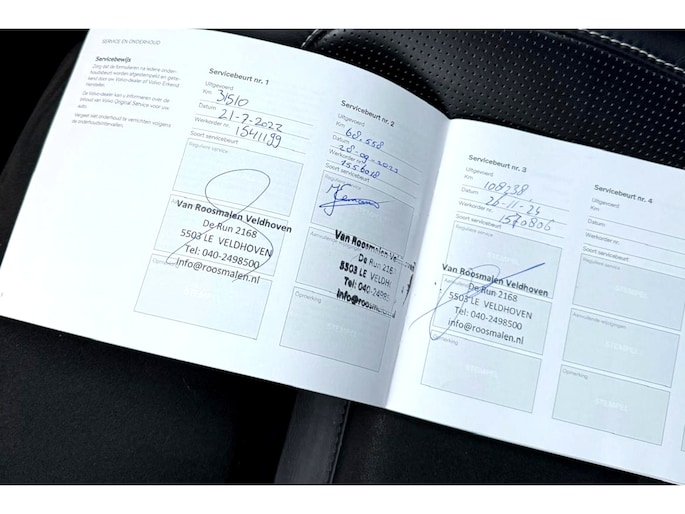 SERVICE EN ONDERHOUD
Servicebewijs
Zorg dat de formulieren na iedere onder-
houdsbeurt worden afgestempeld en gete-
kend door uw Volvo-dealer of Volvo Erkend
hersteller.
De Volvo-dealer kan u informeren over de
inhoud van Volvo Original Service voor uw
auto.
Vergeet niet onderhoud te verrichten volgens
de onderhoudsintervallen.
Servicebeurt nr. 1
Uitgevoerd
Km 31510
Datum 21-7-2022
Werkorder nr. 1541199
Soort servicebeurt
Reguliere service
Van Roosmalen Veldhoven
De Run 2168
5503 LE VELDHOVEN
Tel: 040-2498500
info@roosmalen.nl
Opmerking
Servicebeurt nr. 2
Uitgevoerd
Km 68.558
Datum 28-09-2023
Werkorder nr.
Soort servicebeurt
Reguliere service
Van Roosmalen Veldhoven
De Run 2168
5503 LE VELDH
Tel: 040-2498
info@roosm
Opmerking
STEMPEL
Servicebeurt nr. 3
Uitgevoerd
Km 108238
Datum 26-11-24
Werkorder nr. 1570806
Soort servicebeurt
Reguliere service
STEMPEL
Van Roosmalen Veldhoven
De Run 2168
5503 LE VELDHOVEN
Tel: 040-2498500
info@roosmalen.nl
Opmerking
STEMPEL
Servicebeurt nr. 4
Uitgevoerd
Km
Datum
Werkorder nr.
Soort servicebeurt
Reguliere service
STEMPEL
Opmerking
STEMPEL